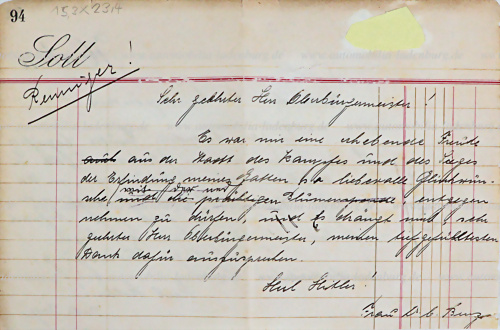 94
15,3 x 23,4
Soll
Renninger!
Sehr geehrter Herr Oberbürgermeister!
Es war mir eine erhebende Freude
auch aus der Stadt des Kampfes und des Sieges
der Erfindung meines Gatten so liebevolle Glückwün-
sche, und die prächtigen Blumenspende, entgegen
nehmen zu dürfen, und Es drängt mich, sehr
geehrter Herr Oberbürgermeister, meinen tiefgefühltesten
Dank dafür auszusprechen.
Heil Hitler!
Frau Benz